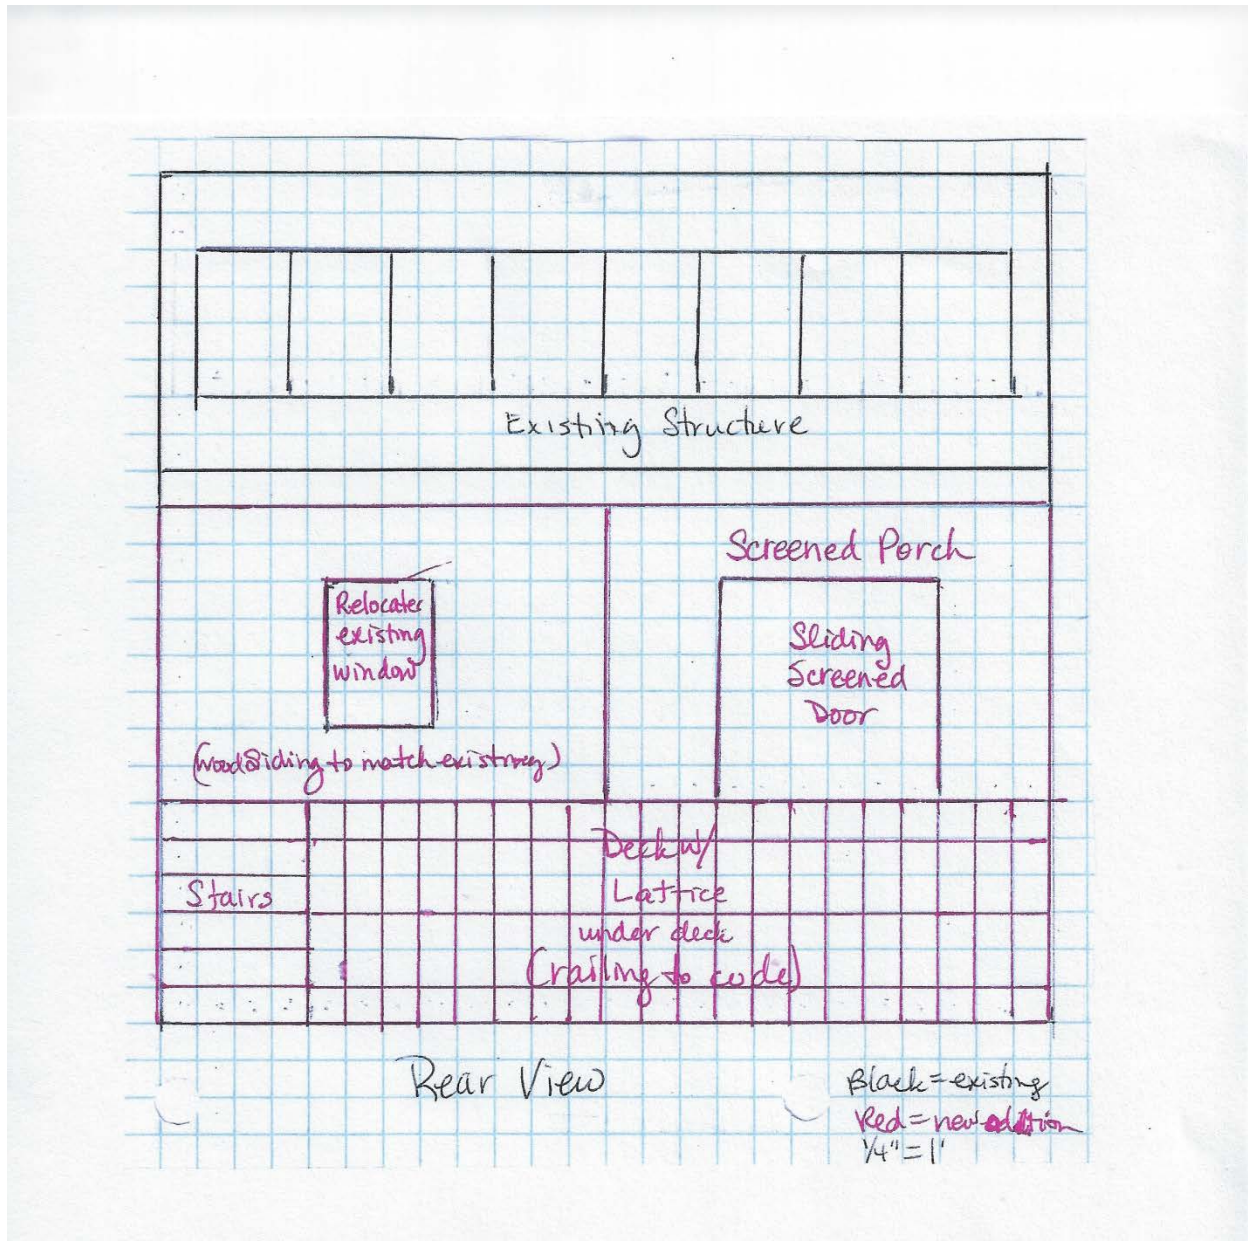 Existing Structure
Screened Porch
Relocated
existing
window
Sliding
Screened
Door
(wood Siding to match existing)
Stairs
Deck w/
Lattice
under deck
(railing to code)
Rear View
Black = existing
Red = new addition
1/4" = 1'